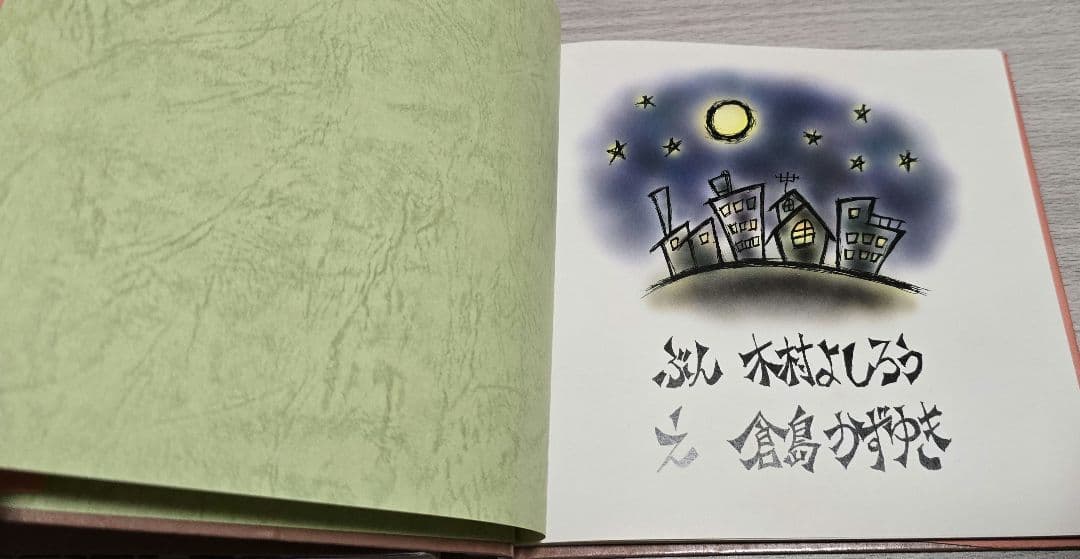 ぶん 木村よしろう
え 倉島かずゆき